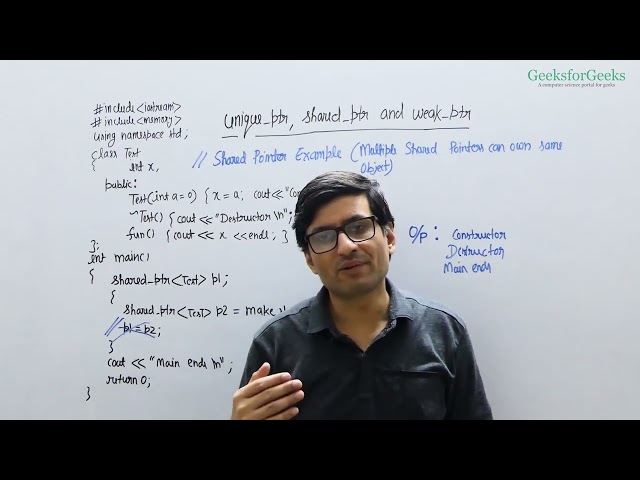 GeeksforGeeks
A computer science portal for geeks
unique_ptr, shared_ptr and weak_ptr
// Shared Pointer Example (Multiple Shared Pointers can own same
Object)
#include<iostream>
#include<memory>
using namespace std;
class Test
{ int x;
public:
Test(int a=0) { x=a; cout<<"Con
~Test() { cout<<"Destructor \n";
fun() { cout<< x <<endl; }
};
int main()
{ shared_ptr<Test> p1;
{
shared_ptr<Test> p2 = make
// p1=p2;
}
cout << "Main ends \n";
return 0;
}
O/p: Constructor
Destructor
Main ends